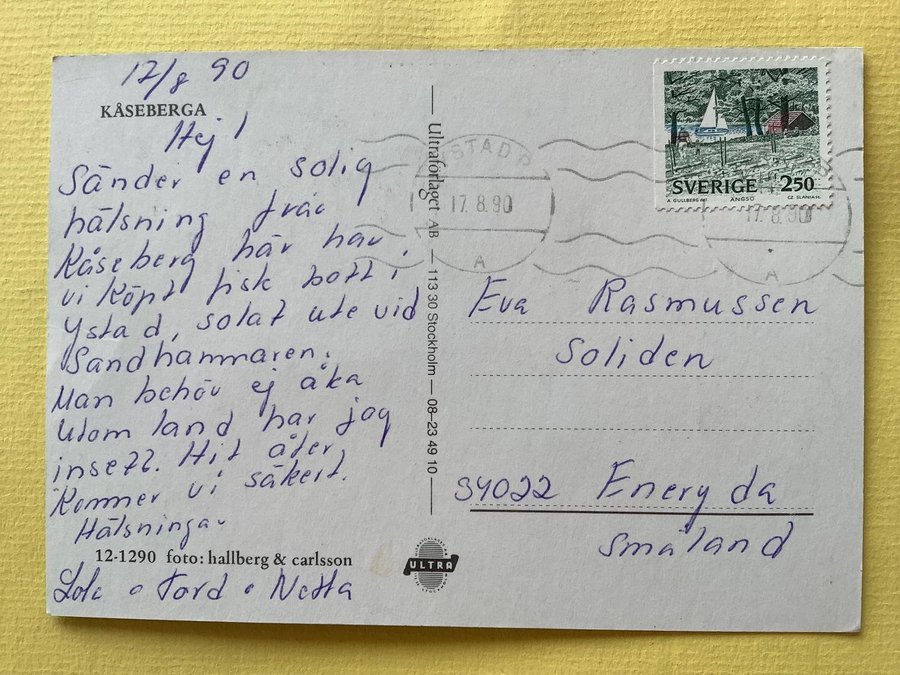 17/8 90
KÅSEBERGA
Hej!
Sänder en solig
hälsning från
Kåseberg här har
vi köpt fisk bott i
Ystad, solat ute vid
Sandhammaren.
Man behöv ej åka
utom land har jag
insett. Hit åter
kommer vi säkert.
Hälsningar
12-1290 foto: hallberg & carlsson
o Tord o Netta
Ultraförlaget AB — 113 30 Stockholm — 08–23 49 10
ULTRA
YSTAD P
17.8.90
A
SVERIGE 250
A. GULLBERG del. ÄNGSÖ CZ. SLANIA sc.
17.8.90
A
Eva Rasmussen
Soliden
34022 Eneryda
Småland